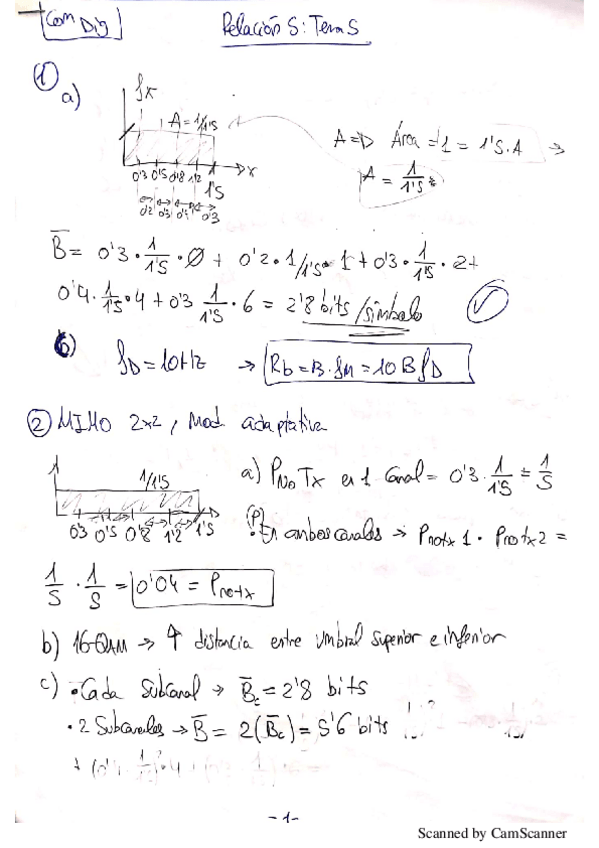 Com Dig
Relación 5: Tema 5
①
a)
fx
A=1/1'5
x
0'3 0'5 0'8 1'2 1'5
0'2 0'3 0'4 0'3
A => Área = 1 = 1'5·A →
A = 1/1'5
B̄ = 0'3 · 1/1'5 · Ø + 0'2 · 1/1'5 · 1 + 0'3 · 1/1'5 · 2 +
0'4 · 1/1'5 · 4 + 0'3 1/1'5 · 6 = 2'8 bits/símbolo
b)
fD = 10Hz → Rb = B · fM = 10 B fD
② MIMO 2x2, Mod adaptativa
1/1'5
0'3 0'5 0'8 1'2 1'5
a) PNoTx en 1 Canal = 0'3 · 1/1'5 = 1/5
En ambos canales → Pnotx1 · Pnotx2 =
1/5 · 1/5 = 0'04 = Pnotx
b) 16-QAM → ↑ distancia entre umbral superior e inferior
c) · Cada Subcanal → B̄c = 2'8 bits
· 2 Subcanales → B̄ = 2(B̄c) = 5'6 bits
- 1 -
Scanned by CamScanner